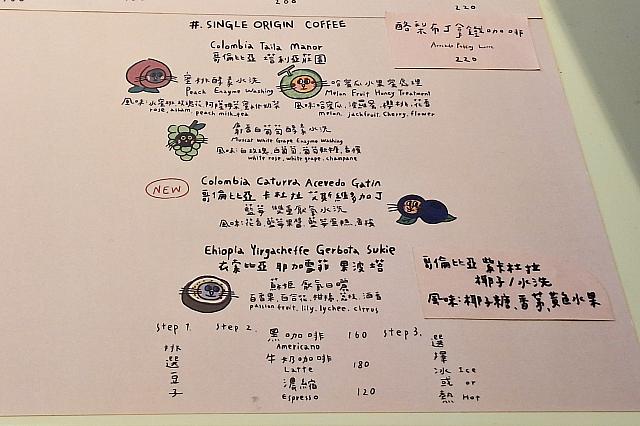 220
#. SINGLE ORIGIN COFFEE
酪梨布丁拿鐵咖啡
Avocado Pudding Latte
220
Colombia Taila Manor
哥倫比亞 塔利亞莊園
蜜桃酵素水洗
Peach Enzyme Washing
風味:水蜜桃,玫瑰花,阿薩姆蜜桃奶茶
rose, assam, peach milk tea
哈蜜瓜水果蜜處理
Melon Fruit Honey Treatment
風味:哈蜜瓜、波蘿蜜、櫻桃、花香
melon, jackfruit, Cherry, flower
麝香白葡萄酵素水洗
Muscat White Grape Enzyme Washing
風味:白玫瑰、白葡萄、葡萄軟糖、香檳
white rose, white grape, champane
NEW
Colombia Caturra Acevedo Gatin
哥倫比亞 卡杜拉 艾斯維多加丁
藍莓 雙重厭氧水洗
風味:花香,藍莓果醬,藍莓蛋糕,香檳
Ehiopla Yirgacheffe Gerbota Sukie
衣索比亞 耶加雪菲 果波塔
蘇姬 厭氧日曬
百香果、百合花、柑橘、荔枝、酒香
passion fruit, lily, lychee, citrus
哥倫比亞 紫卡杜拉
椰子/水洗
風味:椰子糖、香茅、黃色水果
step 1.
挑選豆子
step 2.
黑咖啡 160
Americano
牛奶咖啡 180
Latte
濃縮 120
Espresso
step 3.
選擇
冰 Ice
或 or
熱 Hot